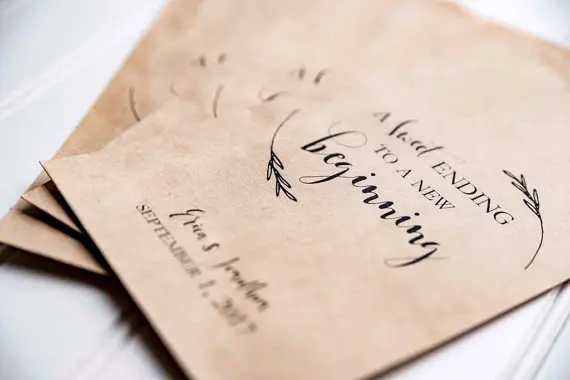 A sweet ENDING
TO A NEW
beginning
Erin & Jonathan
SEPTEMBER 1, 2017